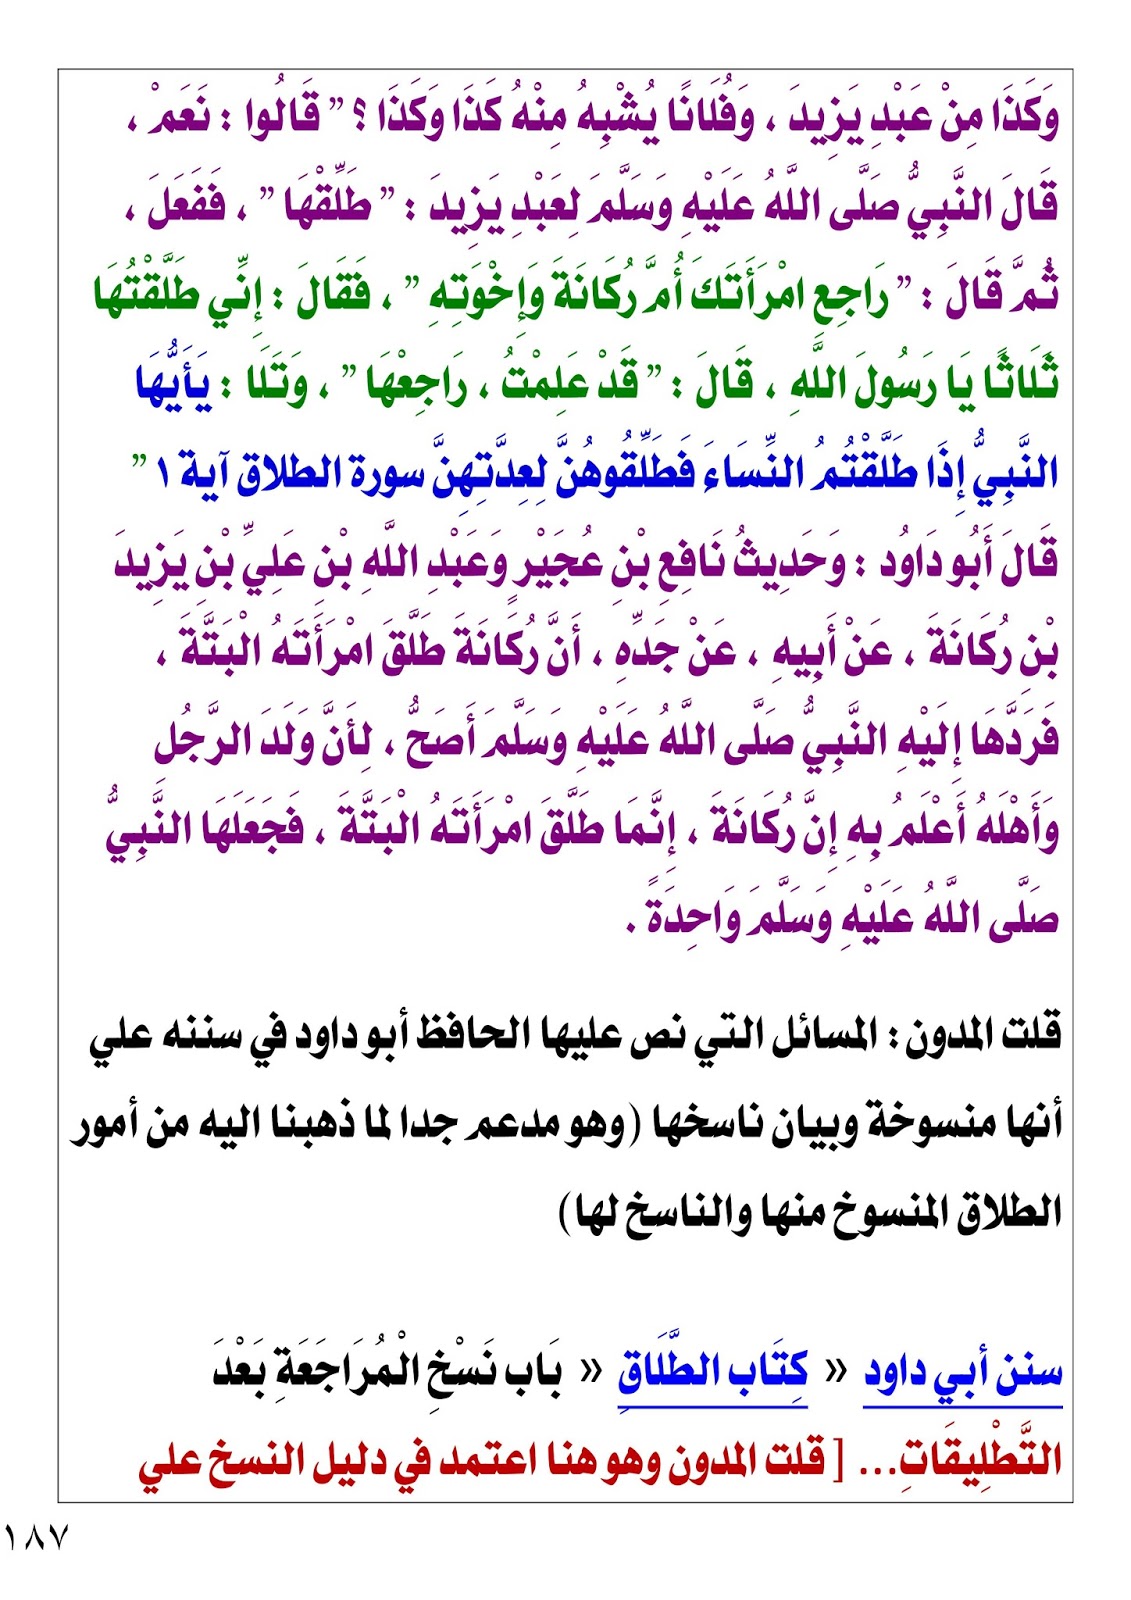 وَكَذَا مِنْ عَبْدِ يَزِيدَ ، وَفُلَانًا يُشْبِهُ مِنْهُ كَذَا وَكَذَا ؟ " قَالُوا : نَعَمْ ،
قَالَ النَّبِيُّ صَلَّى اللَّهُ عَلَيْهِ وَسَلَّمَ لِعَبْدِ يَزِيدَ : " طَلِّقْهَا " ، فَفَعَلَ ،
ثُمَّ قَالَ : " رَاجِعِ امْرَأَتَكَ أُمَّ رُكَانَةَ وَإِخْوَتِهِ " ، فَقَالَ : إِنِّي طَلَّقْتُهَا
ثَلَاثًا يَا رَسُولَ اللَّهِ ، قَالَ : " قَدْ عَلِمْتُ ، رَاجِعْهَا " ، وَتَلَا : يَأَيُّهَا
النَّبِيُّ إِذَا طَلَّقْتُمُ النِّسَاءَ فَطَلِّقُوهُنَّ لِعِدَّتِهِنَّ سورة الطلاق آية ١ "
قَالَ أَبُو دَاوُد : وَحَدِيثُ نَافِعِ بْنِ عُجَيْرٍ وَعَبْدِ اللَّهِ بْنِ عَلِيِّ بْنِ يَزِيدَ
بْنِ رُكَانَةَ ، عَنْ أَبِيهِ ، عَنْ جَدِّهِ ، أَنَّ رُكَانَةَ طَلَّقَ امْرَأَتَهُ الْبَتَّةَ ،
فَرَدَّهَا إِلَيْهِ النَّبِيُّ صَلَّى اللَّهُ عَلَيْهِ وَسَلَّمَ أَصَحُّ ، لِأَنَّ وَلَدَ الرَّجُلِ
وَأَهْلَهُ أَعْلَمُ بِهِ إِنَّ رُكَانَةَ ، إِنَّمَا طَلَّقَ امْرَأَتَهُ الْبَتَّةَ ، فَجَعَلَهَا النَّبِيُّ
صَلَّى اللَّهُ عَلَيْهِ وَسَلَّمَ وَاحِدَةً .
قلت المدون : المسائل التي نص عليها الحافظ أبو داود في سننه علي
أنها منسوخة وبيان ناسخها (وهو مدعم جدا لما ذهبنا اليه من أمور
الطلاق المنسوخ منها والناسخ لها)
سنن أبي داود « كِتَاب الطَّلَاقِ « بَاب نَسْخِ الْمُرَاجَعَةِ بَعْدَ
التَّطْلِيقَاتِ... [ قلت المدون وهو هنا اعتمد في دليل النسخ علي
١٨٧